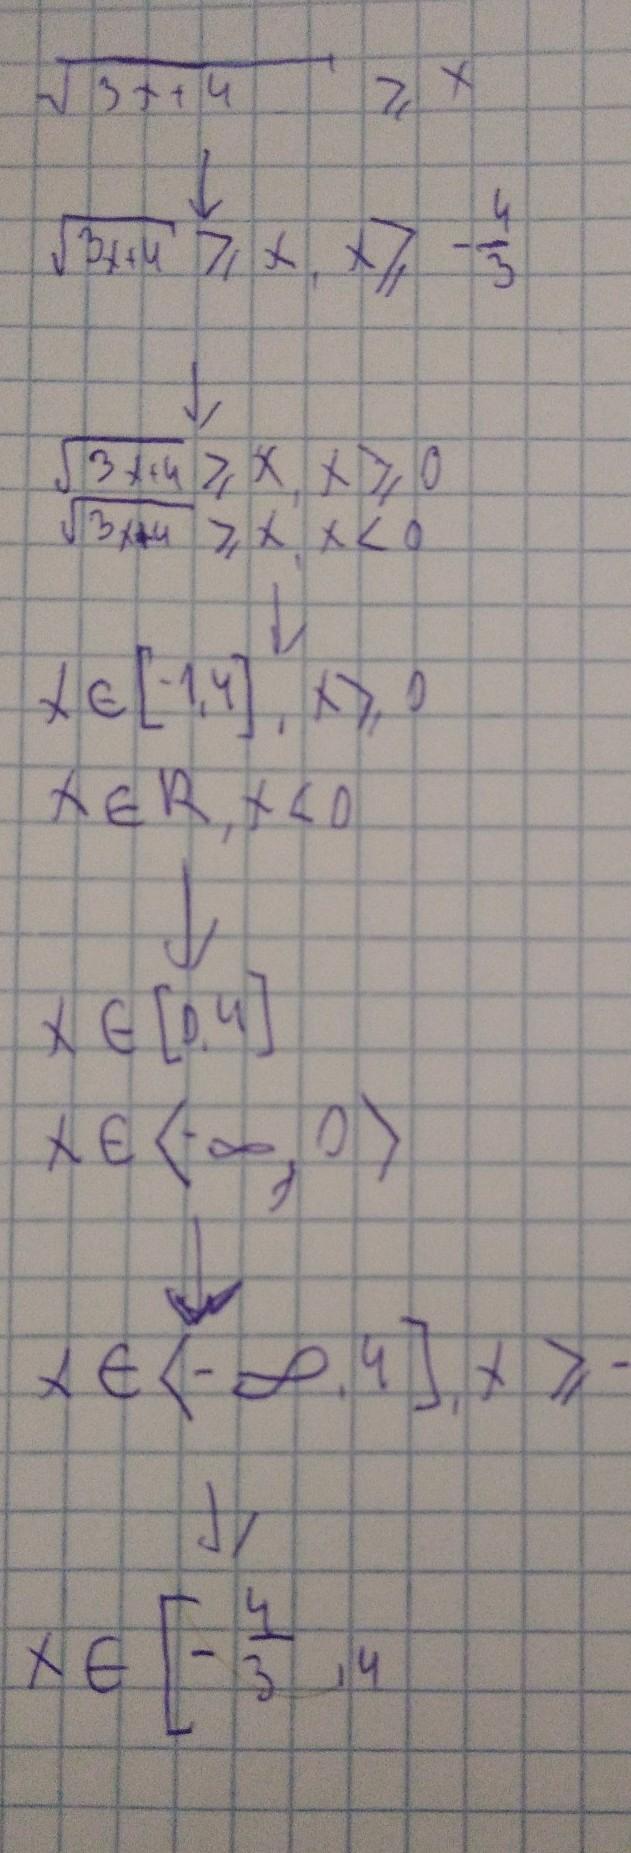 √3x+4 ≥ x
↓
√3x+4 ≥ x, x ≥ -4/3
↓
√3x+4 ≥ x, x ≥ 0
√3x+4 ≥ x, x < 0
↓
x ∈ [-1,4], x ≥ 0
x ∈ R, x < 0
↓
x ∈ [0,4]
x ∈ ⟨-∞, 0⟩
↓
x ∈ ⟨-∞,4], x ≥ -
↓
x ∈ [-4/3, 4